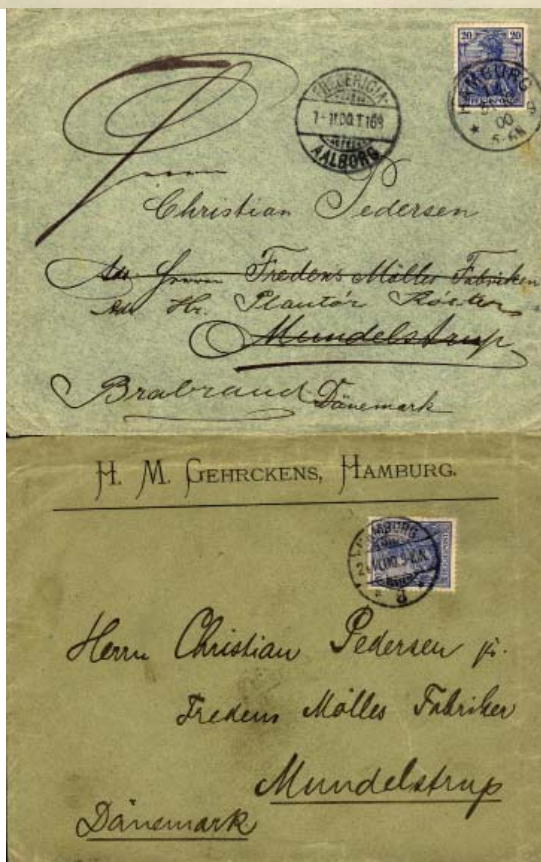 20 20
HAMBURG
00
5-6N
FREDERICIA
AALBORG
Herrn
Christian Pedersen
Adr. Herrn Fredens Mölles Fabriken
Adr. Hr. Plantör
Mundelstrup
Brabrand Dänemark
H. M. GEHRCKENS, HAMBURG.
HAMBURG
Herrn Christian Pedersen jr.
Fredens Mölles Fabriker
Mundelstrup
Dänemark